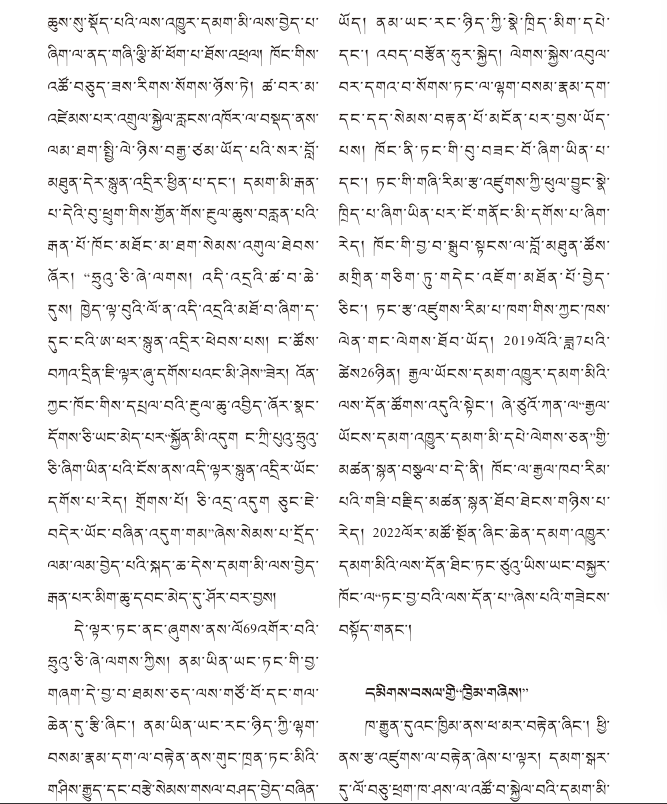 ཆུས་སུ་སྡོད་པའི་ལས་འགྱུར་དམག་མི་ལས་བྱེད་པ་
ཞིག་ལ་ནད་གཞི་ལྕི་མོ་ཕོག་པ་ཐོས་འཕྲལ། ཁོང་གིས་
འཚོ་བཅུད་ཟས་རིགས་སོགས་ཉོས་ཏེ། ཚ་བར་མ་
འཛེམས་པར་འགྲུལ་སྐྱེལ་རླངས་འཁོར་ལ་བསྡད་ནས་
ལམ་ཐག་སྤྱི་ལེ་ཉིས་བརྒྱ་ཙམ་ཡོད་པའི་སར་བློ་
མཐུན་དེར་སྙུན་འདྲིར་ཕྱིན་པ་དང་། དམག་མི་རྒན་
པ་དེའི་བུ་ཕྲུག་གིས་གྱོན་གོས་རྔུལ་ཆུས་བརླན་པའི་
རྒན་པོ་ཁོང་མཐོང་མ་ཐག་སེམས་འགུལ་ཐེབས་
ཞོར། “ཧྲུའུ་ཅི་ཞེ་ལགས། འདི་འདྲའི་ཚ་བ་ཆེ་
དུས། ཁྱེད་ལྟ་བུའི་ལོ་ན་འདི་འདྲའི་མཐོ་བ་ཞིག་ད་
དུང་ངའི་ཨ་ཕར་སྙུན་འདྲིར་ཕེབས་པས། ང་ཚོས་
བཀའ་དྲིན་ཇི་ལྟར་ཞུ་དགོས་པའང་མི་ཤེས”ཟེར། འོན་
ཀྱང་ཁོང་གིས་དཔྲལ་བའི་རྔུལ་ཆུ་འབྱིད་ཞོར་སྣང་
དོགས་ཅི་ཡང་མེད་པར“སྐྱོན་མི་འདུག ང་ཀྲི་པུའུ་ཧྲུའུ་
ཅི་ཞིག་ཡིན་པའི་ངོས་ནས་འདི་ལྟར་སྙུན་འདྲིར་ཡོང་
དགོས་པ་རེད། གྲོགས་པོ། ཅི་འདྲ་འདུག ཅུང་ཇེ་
བདེར་ཡོང་བཞིན་འདུག་གམ”ཞེས་སེམས་པ་དྲོད་
ལམ་ལམ་བྱེད་པའི་སྐད་ཆ་དེས་དམག་མི་ལས་བྱེད་
རྒན་པར་མིག་ཆུ་དབང་མེད་དུ་ཤོར་བར་བྱས།
དེ་ལྟར་ཏང་ནང་ཞུགས་ནས་ལོ69འགོར་བའི་
ཧྲུའུ་ཅི་ཞེ་ལགས་ཀྱིས། ནམ་ཡིན་ཡང་ཏང་གི་བྱ་
གཞག་དེ་བྱ་བ་ཐམས་ཅད་ལས་གཙོ་བོ་དང་གལ་
ཆེན་དུ་རྩི་ཞིང་། ནམ་ཡིན་ཡང་རང་ཉིད་ཀྱི་ལྷག་
བསམ་རྣམ་དག་ལ་བརྟེན་ནས་གུང་ཁྲན་ཏང་མིའི་
གཤིས་རྒྱུད་དང་བརྩེ་སེམས་གསལ་བཤད་བྱེད་བཞིན་
ཡོད། ནམ་ཡང་རང་ཉིད་ཀྱི་སྣེ་ཁྲིད་མིག་དཔེ་
དང་། འབད་བརྩོན་ཧུར་སྐྱེད། ལེགས་སྐྱེས་འབུལ་
བར་དགའ་བ་སོགས་ཏང་ལ་ལྷག་བསམ་རྣམ་དག་
དང་དད་སེམས་བརྟན་པོ་མངོན་པར་བྱས་ཡོད་
པས། ཁོང་ནི་ཏང་གི་བུ་བཟང་བོ་ཞིག་ཡིན་པ་
དང་། ཏང་གི་གཞི་རིམ་རྩ་འཛུགས་ཀྱི་ཕུལ་བྱུང་སྣེ་
ཁྲིད་པ་ཞིག་ཡིན་པར་ངོ་གནོང་མི་དགོས་པ་ཞིག་
རེད། ཁོང་གི་བྱ་བ་སྒྲུབ་སྟངས་ལ་བློ་མཐུན་ཚོས་
མགྲིན་གཅིག་ཏུ་གདེང་འཇོག་མཐོན་པོ་བྱེད་
ཅིང་། ཏང་རྩ་འཛུགས་རིམ་པ་ཁག་གིས་ཀྱང་ཁས་
ལེན་གང་ལེགས་ཐོབ་ཡོད། 2019ལོའི་ཟླ7པའི་
ཚེས26ཉིན། རྒྱལ་ཡོངས་དམག་འགྱུར་དམག་མིའི་
ལས་དོན་ཚོགས་འདུའི་སྟེང་། ཞེ་ཙུའོ་ཀན་ལ“རྒྱལ་
ཡོངས་དམག་འགྱུར་དམག་མི་དཔེ་ལེགས་ཅན”གྱི་
མཚན་སྙན་བསྩལ་བ་དེ་ནི། ཁོང་ལ་རྒྱལ་ཁབ་རིམ་
པའི་གཟི་བརྗིད་མཚན་སྙན་ཐོབ་ཐེངས་གཉིས་པ་
རེད། 2022ལོར་མཚོ་སྔོན་ཞིང་ཆེན་དམག་འགྱུར་
དམག་མིའི་ལས་དོན་ཐིང་ཏང་ཙུའུ་ཡིས་ཡང་བསྐྱར་
ཁོང་ལ“ཏང་བྱ་བའི་ལས་དོན་པ”ཞེས་པའི་གཟེངས་
བསྟོད་གནང་།
དམིགས་བསལ་གྱི“ཁྱིམ་གཞིས།”
ཁ་རྒྱུན་དུའང་ཁྱིམ་ནས་ཕ་མར་བརྟེན་ཞིང་། ཕྱི་
ནས་རྩ་འཛུགས་ལ་བརྟེན་ཞེས་པ་ལྟར། དམག་སྒར་
དུ་ལོ་བཅུ་ཕྲག་ཁ་ཤས་ལ་འཚོ་བ་སྐྱེལ་བའི་དམག་མི་